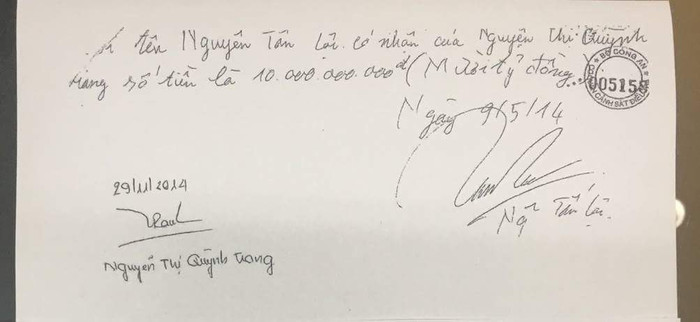 tên Nguyên Tấn Lợi. có nhận của Nguyện Thị Quỳnh
trang số tiền là 10.000.000.000đ (Mười tỷ đồng)
BỘ CÔNG AN
005158
CẢNH SÁT ĐIỀU
Ngày 9/5/14
29/11/2014
Ng Tấn Lợi.
Nguyễn Thị Quỳnh Trang